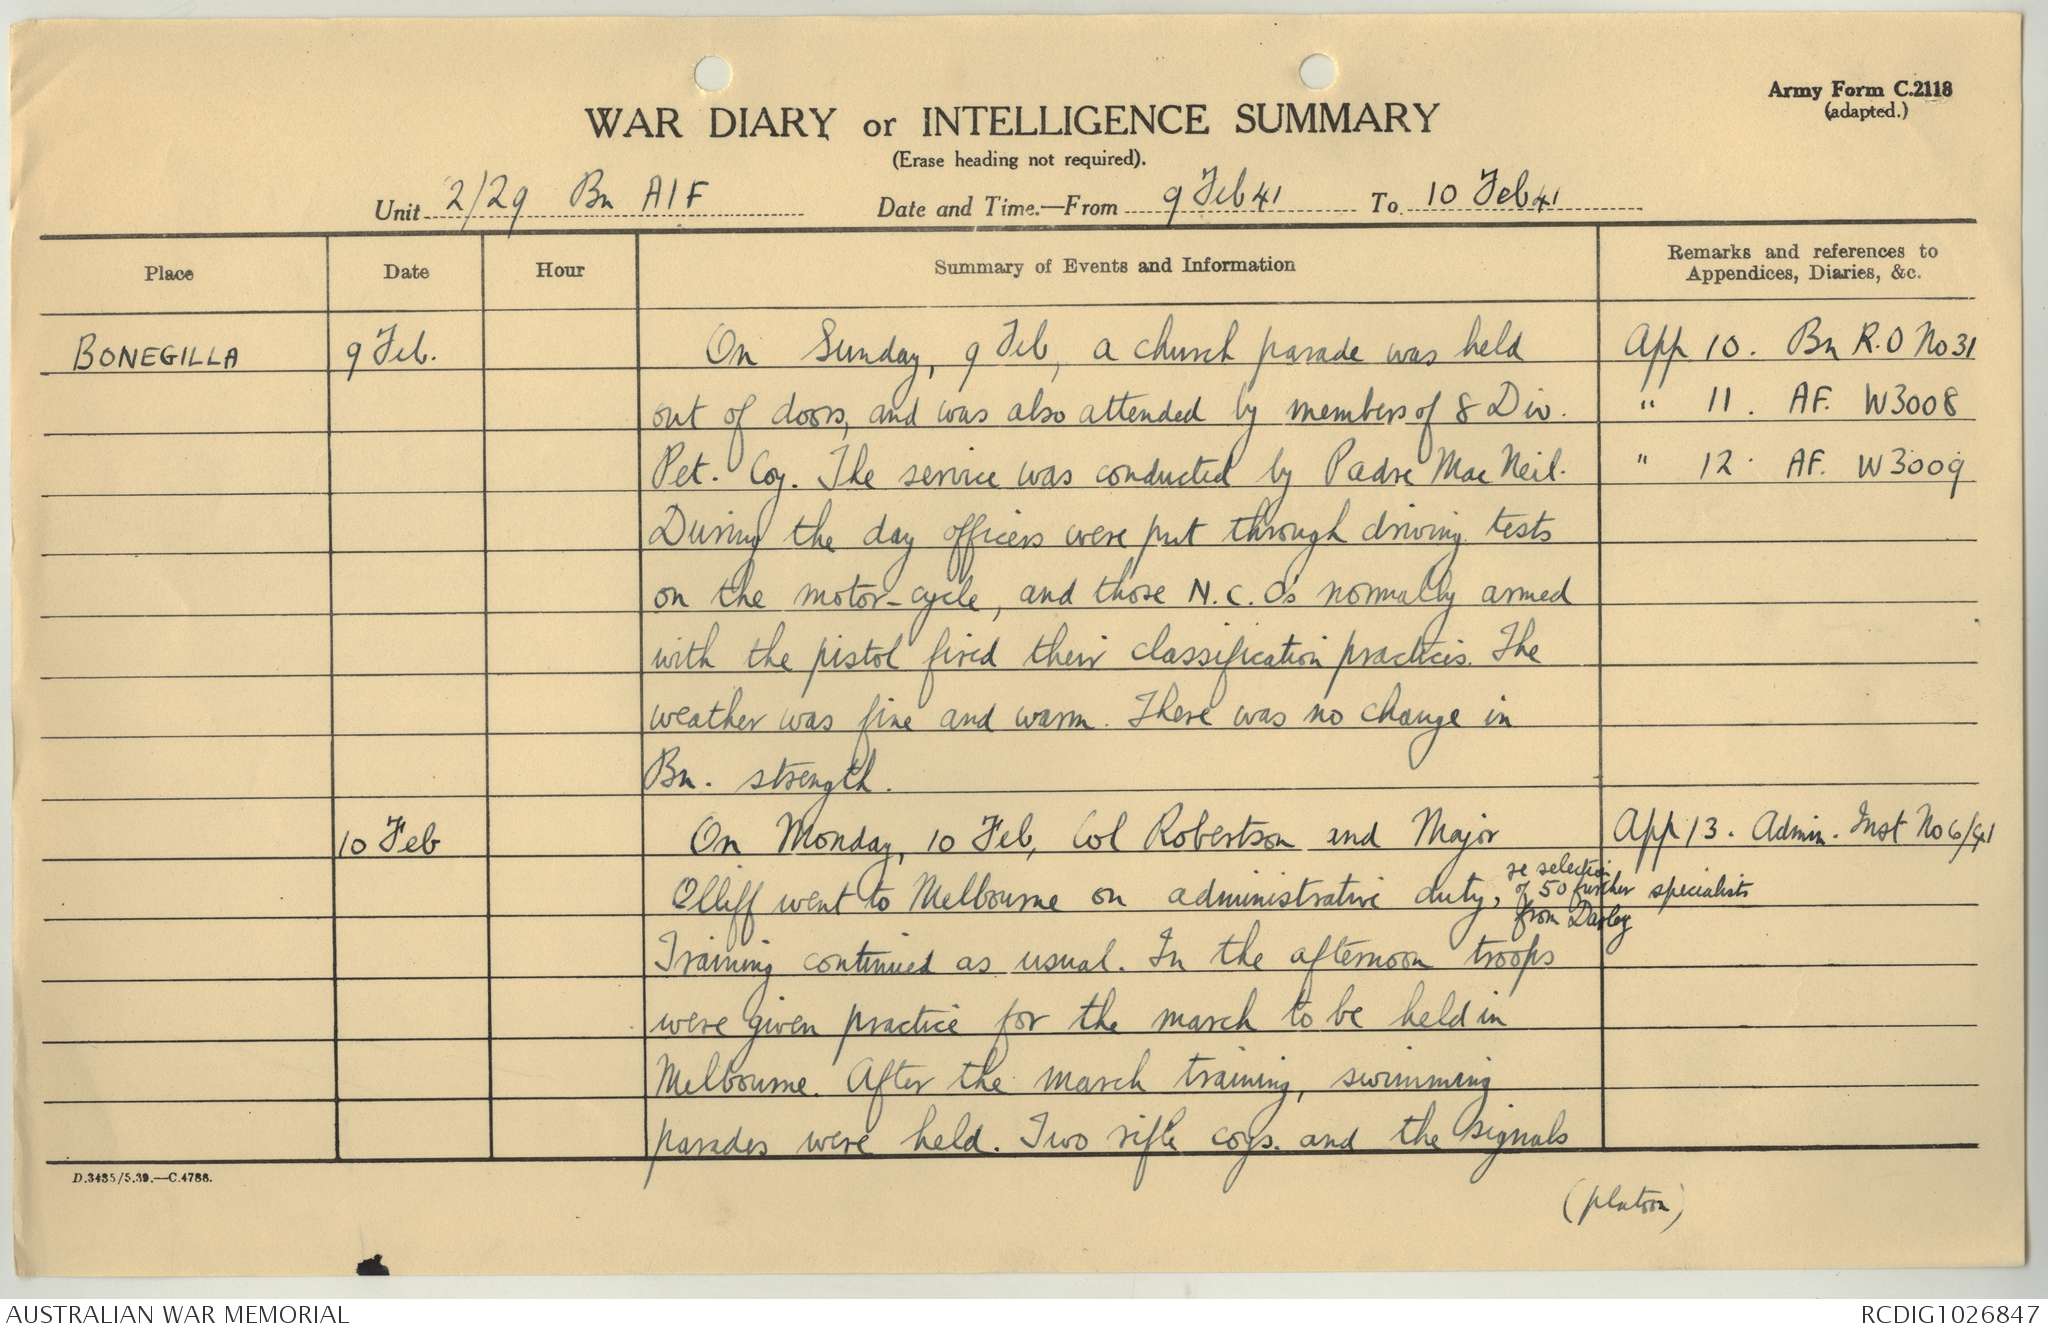 Army Form C.2118
(adapted.)
WAR DIARY or INTELLIGENCE SUMMARY
(Erase heading not required).
Unit 2/29 Bn AIF Date and Time.—From 9 Feb 41 To 10 Feb 41
Place Date Hour Summary of Events and Information Remarks and references to
Appendices, Diaries, &c.
BONEGILLA 9 Feb. On Sunday, 9 Feb, a church parade was held App 10. Bn R.O No 31
out of doors, and was also attended by members of 8 Div. " 11. AF. W3008
Pet. Coy. The service was conducted by Padre MacNeil. " 12. AF. W3009
During the day officers were put through driving tests
on the motor-cycle, and those N.C.O's normally armed
with the pistol fired their classification practices. The
weather was fine and warm. There was no change in
Bn. strength.
10 Feb On Monday, 10 Feb, Col Robertson and Major App 13. Admin. Inst No 6/41
Olliff went to Melbourne on administrative duty, re selection
of 50 further specialists
from Darley
Training continued as usual. In the afternoon troops
were given practice for the march to be held in
Melbourne. After the march training, swimming
parades were held. Two rifle coys. and the signals
(platoon)
D.3435/5.39.—C.4788.
AUSTRALIAN WAR MEMORIAL RCDIG1026847